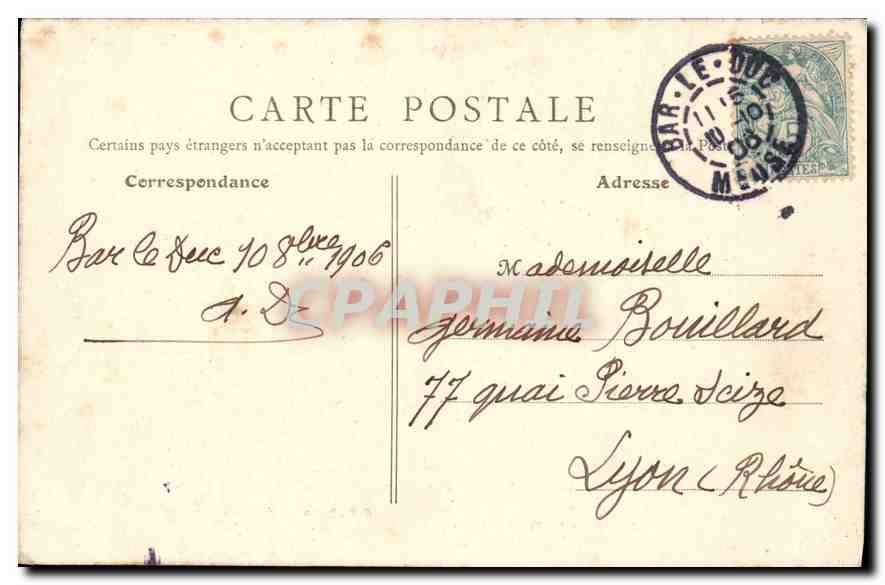 CARTE POSTALE
Certains pays étrangers n'acceptant pas la correspondance de ce côté, se renseigner à la Poste
Correspondance
Adresse
BAR·LE·DUC
11 15
10 10
06
MEUSE
Bar le Duc 10 8bre 1906
a. D.
Mademoiselle
Germaine Bouillard
77 quai Pierre Scize
Lyon (Rhône)
CPAPHIL